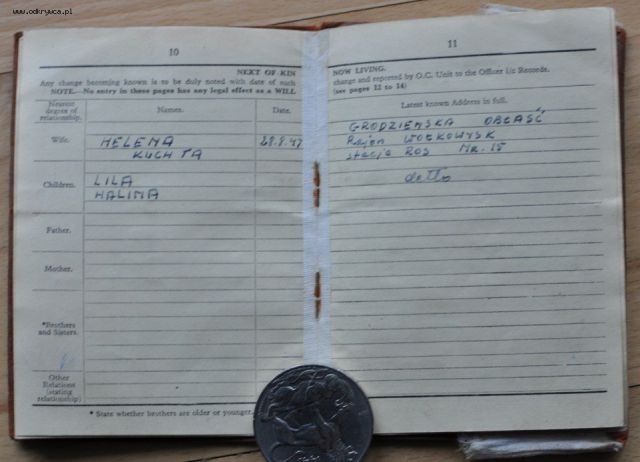 www.odkrywca.pl
10
NEXT OF KIN
Any change becoming known is to be duly noted with date of such
NOTE.—No entry in these pages has any legal effect as a WILL
Nearest degree of relationship.
Names.
Date.
Wife.
HELENA
KUCHTA
28.8.47
Children.
LILA
HALINA
Father.
Mother.
*Brothers and Sisters.
Other Relations (stating relationship)
* State whether brothers are older or younger.
11
NOW LIVING.
change and reported by O.C. Unit to the Officer i/c Records.
(see pages 12 to 14)
Latest known Address in full.
GRODZIEŃSKA OBŁAŚĆ
Rajon WOŁKOWYSK
stacja ROS NR. 15
detto